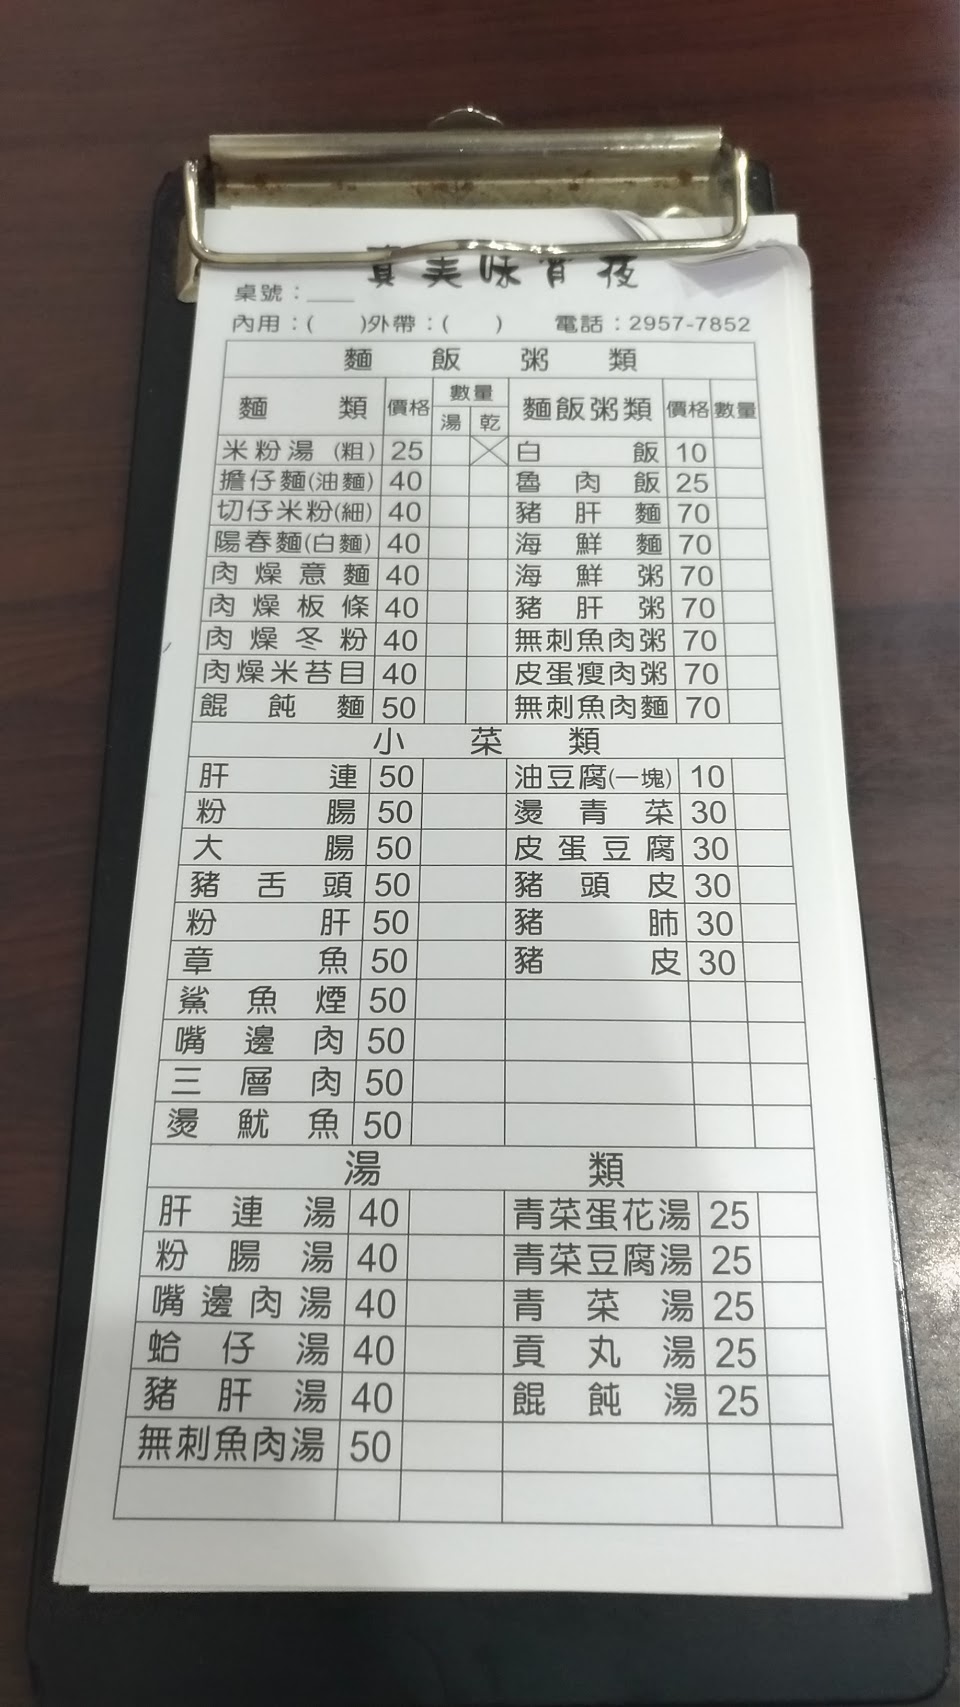 真美味宵夜
桌號：____
內用：(　　)外帶：(　　)　電話：2957-7852
麵飯粥類
麵類 價格 數量 湯 乾 麵飯粥類 價格 數量
米粉湯(粗) 25 白飯 10
擔仔麵(油麵) 40 魯肉飯 25
切仔米粉(細) 40 豬肝麵 70
陽春麵(白麵) 40 海鮮麵 70
肉燥意麵 40 海鮮粥 70
肉燥板條 40 豬肝粥 70
肉燥冬粉 40 無刺魚肉粥 70
肉燥米苔目 40 皮蛋瘦肉粥 70
餛飩麵 50 無刺魚肉麵 70
小菜類
肝連 50 油豆腐(一塊) 10
粉腸 50 燙青菜 30
大腸 50 皮蛋豆腐 30
豬舌頭 50 豬頭皮 30
粉肝 50 豬肺 30
章魚 50 豬皮 30
鯊魚煙 50
嘴邊肉 50
三層肉 50
燙魷魚 50
湯類
肝連湯 40 青菜蛋花湯 25
粉腸湯 40 青菜豆腐湯 25
嘴邊肉湯 40 青菜湯 25
蛤仔湯 40 貢丸湯 25
豬肝湯 40 餛飩湯 25
無刺魚肉湯 50